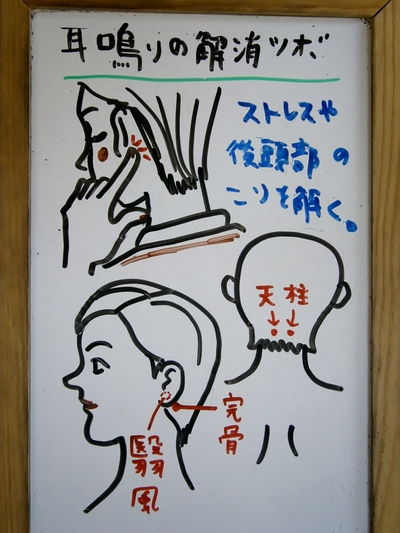 耳鳴りの解消ツボ
ストレスや
後頭部の
こりを解く。
天柱
完骨
翳風